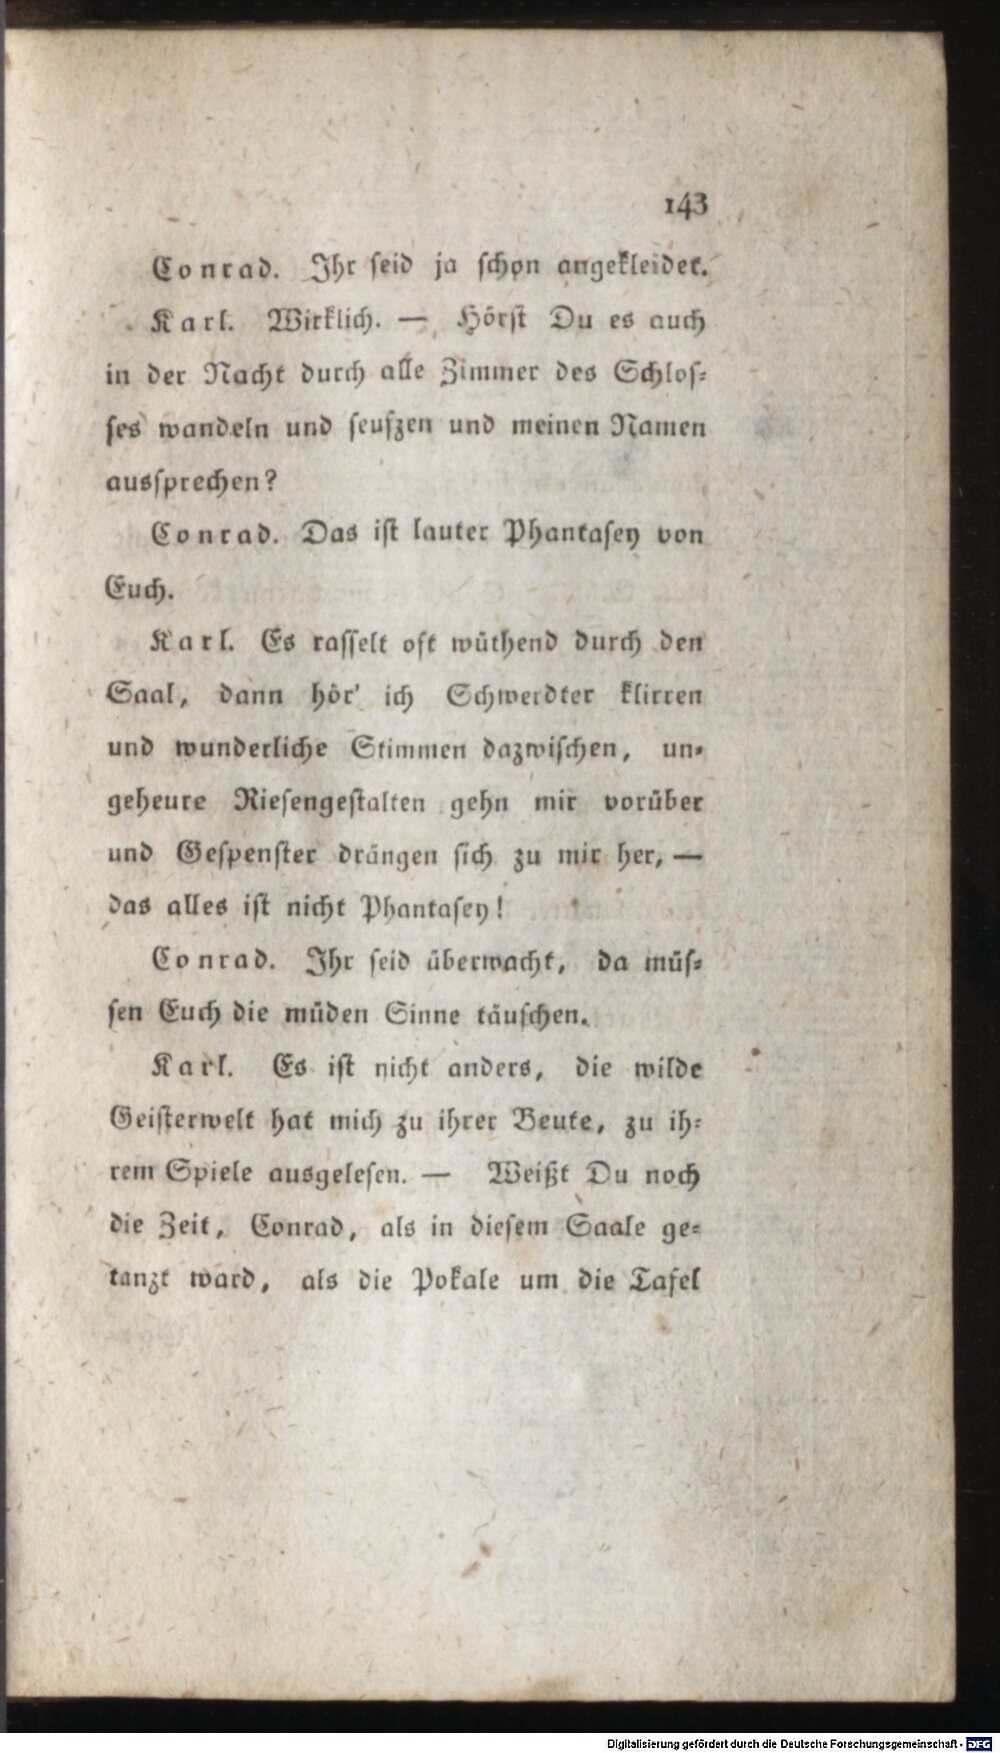 143
Conrad. Ihr seid ja schon angekleidet.
Karl. Wirklich. — Hörst Du es auch
in der Nacht durch alle Zimmer des Schlos-
ses wandeln und seufzen und meinen Namen
aussprechen?
Conrad. Das ist lauter Phantasey von
Euch.
Karl. Es rasselt oft wüthend durch den
Saal, dann hör' ich Schwerdter klirren
und wunderliche Stimmen dazwischen, un-
geheure Riesengestalten gehn mir vorüber
und Gespenster drängen sich zu mir her, —
das alles ist nicht Phantasey!
Conrad. Ihr seid überwacht, da müs-
sen Euch die müden Sinne täuschen.
Karl. Es ist nicht anders, die wilde
Geisterwelt hat mich zu ihrer Beute, zu ih-
rem Spiele ausgelesen. — Weißt Du noch
die Zeit, Conrad, als in diesem Saale ge-
tanzt ward, als die Pokale um die Tafel
Digitalisierung gefördert durch die Deutsche Forschungsgemeinschaft - DFG